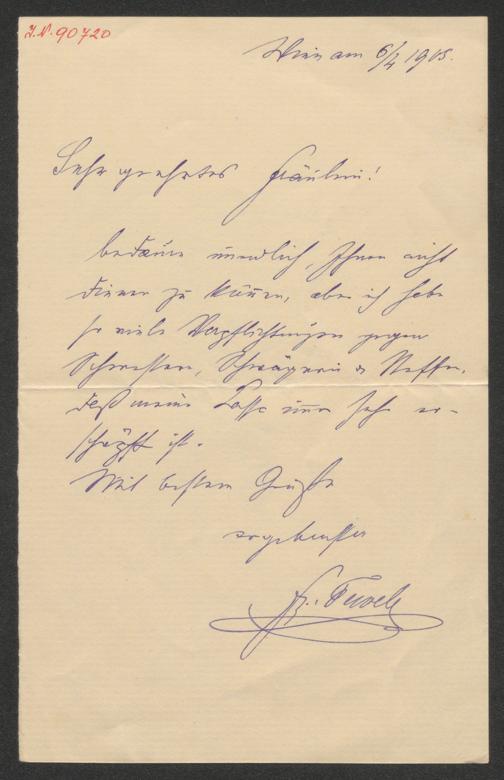 I.N. 90720
Wien am 6/4 1905.
Sehr geehrtes Fräulein!
bedaure unendlich, Ihnen nicht
dienen zu können, aber ich habe
so viele Verpflichtungen gegen
Schwestern, Schwägerin & Neffen,
daß meine Casse immer sehr er-
schöpft ist.
Mit bestem Gruße
ergebenster